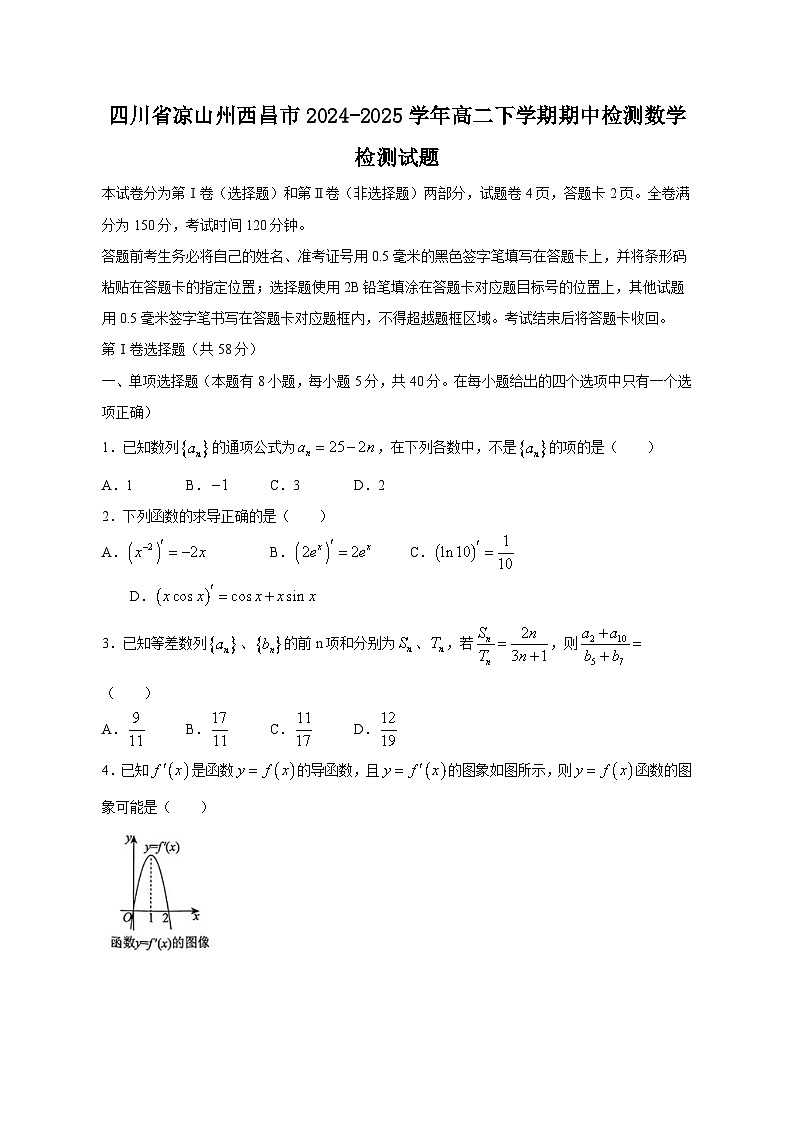 四川省凉山州西昌市 2024-2025 学年高二下学期期中检测数学
检测试题
本试卷分为第 I 卷（选择题）和第 II 卷（非选择题）两部分，试题卷 4 页，答题卡 2 页。全卷满
分为 150 分，考试时间 120 分钟。
答题前考生务必将自己的姓名、准考证号用 0.5 毫米的黑色签字笔填写在答题卡上，并将条形码
粘贴在答题卡的指定位置；选择题使用 2B 铅笔填涂在答题卡对应题目标号的位置上，其他试题
用 0.5 毫米签字笔书写在答题卡对应题框内，不得超越题框区域。考试结束后将答题卡收回。
第 I 卷选择题（共 58 分）
一、单项选择题（本题有 8 小题，每小题 5 分，共 40 分。在每小题给出的四个选项中只有一个选
项正确）
1．已知数列{aₙ}的通项公式为aₙ = 25−2n，在下列各数中，不是{aₙ}的项的是（　　）
A．1 B．−1 C．3 D．2
2．下列函数的求导正确的是（　　）
A．(x⁻²)′ = −2x B．(2eˣ)′ = 2eˣ C．(ln10)′ = 1/10
D．(x cos x)′ = cos x + x sin x
3．已知等差数列{aₙ}、{bₙ}的前 n 项和分别为Sₙ、Tₙ，若Sₙ/Tₙ = 2n/(3n+1)，则(a₂+a₁₀)/(b₅+b₇) =
（　　）
A．9/11 B．17/11 C．11/17 D．12/19
4．已知f′(x)是函数y = f(x)的导函数，且y = f′(x)的图象如图所示，则y = f(x)函数的图
象可能是（　　）
y
y=f′(x)
O 1 2 x
函数y=f′(x)的图像